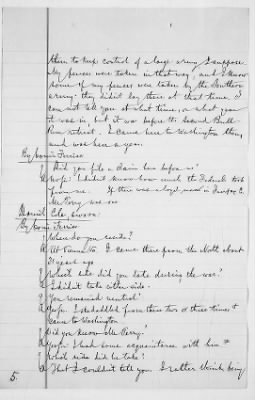 them to keep control of a large army I suppose
My fences were taken in that way, and I know
some of my fences were taken by the Southern
army: they did lay there at that time. I
can not tell you at what time, or what year
it was in, but it was before the second Bull
Run retreat. I came here to Washington then,
and was here a year.
By Comr Ferriss
Q Did you file a claim here before us?
A No sir. I didn't know how much the Federals took
from me. If there was a loyal man in Fairfax Co.
Mr Perry was one
Cole, sworn:
By Comr Ferriss
Q Where do you reside?
A At Vienna Va. I came there from the North about
20 years ago
Q Which side did you take during the war?
A I didn't take either side.
Q You remained neutral?
A Yes sir. I skedaddled from there two or three times &
came to Washington
Q Did you know Mr Perry?
A Yes sir I had some acquaintance with him
Q What side did he take?
A That I couldn't tell you. I rather think, being
5.